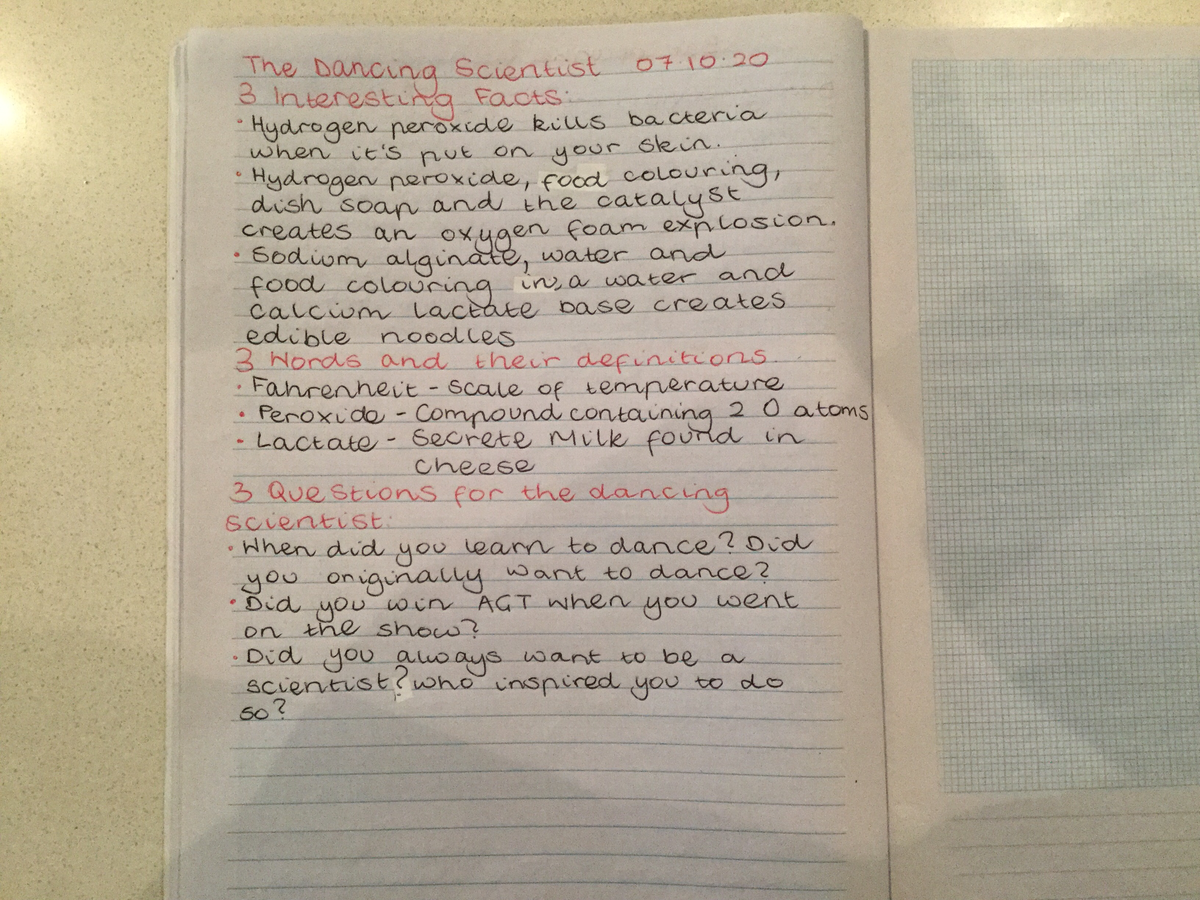 The Dancing Scientist 07.10.20
3 Interesting Facts:
• Hydrogen peroxide kills bacteria
when it's put on your skin.
• Hydrogen peroxide, food colouring,
dish soap and the catalyst
creates an oxygen foam explosion.
• Sodium alginate, water and
food colouring in a water and
calcium lactate base creates
edible noodles
3 Words and their definitions
• Fahrenheit - scale of temperature
• Peroxide - Compound containing 2 O atoms
• Lactate - Secrete Milk found in
cheese
3 Questions for the dancing
scientist:
• When did you learn to dance? Did
you originally want to dance?
• Did you win AGT when you went
on the show?
• Did you always want to be a
scientist? who inspired you to do
so?